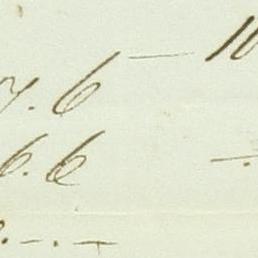 7.6 — 10
6.6 -.
.-.-